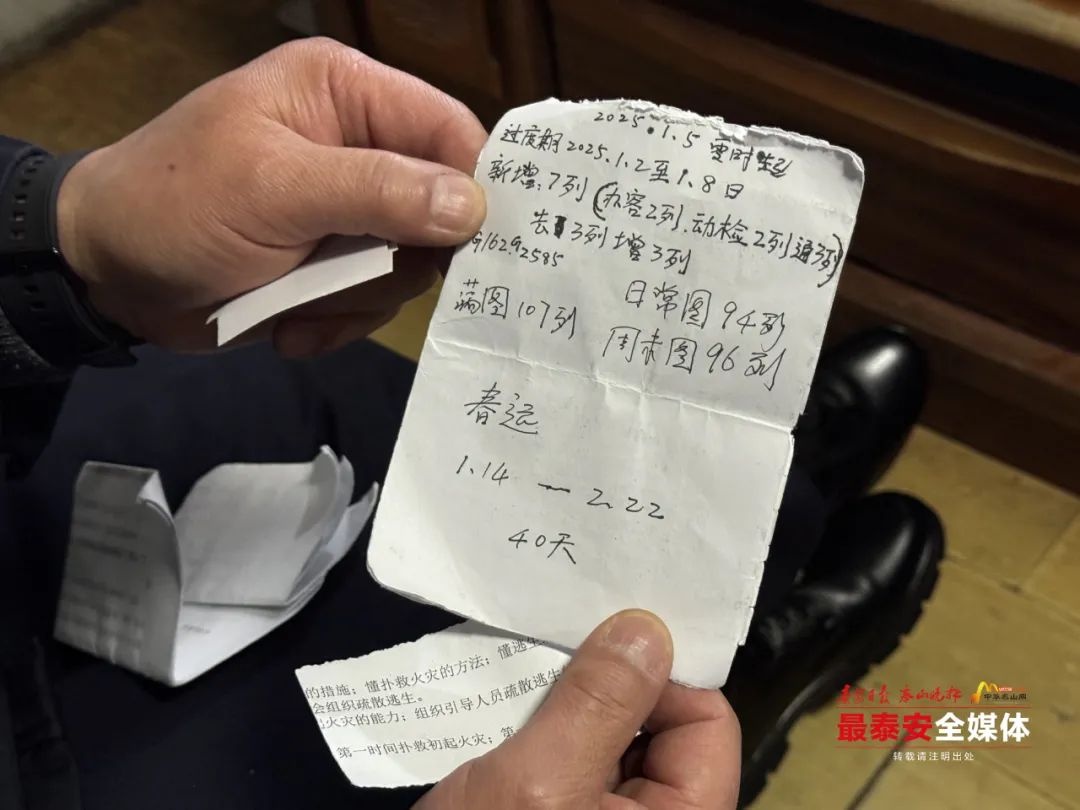 2025.1.5 零时起
过度期 2025.1.2至1.8日
新增:7列(办客2列.动检2列通3列)
去3列增3列
G162.G2585
蓝图107列 日常图94列
周末图96列
春运
1.14 — 2.22
40天
的措施;懂扑救火灾的方法;懂逃生
会组织疏散逃生。
火灾的能力;组织引导人员疏散逃生
第一时间扑救初起火灾;第
泰安日报 泰山晚报 中华泰山网
最泰安全媒体
转载请注明出处